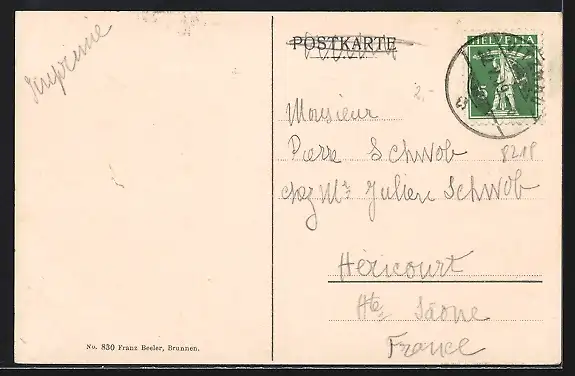 Imprimé
POSTKARTE
HELVETIA
5
2.-
Monsieur
Pierre Schwob
8218
chez Mr Julien Schwob
Héricourt
Hte Saône
France
No. 830 Franz Beeler, Brunnen.